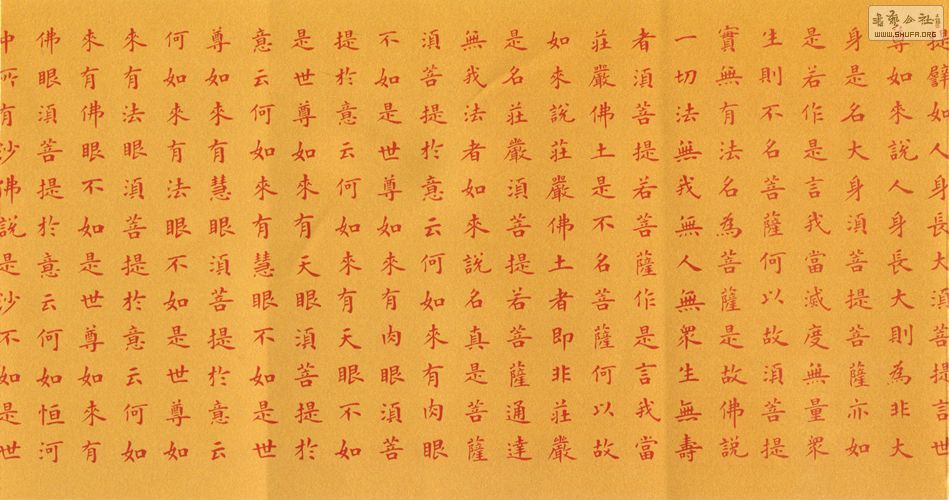 書藝公社
WWW.SHUFA.ORG
提譬如人身長大須菩提言世
尊如來說人身長大則為非大
身是名大身須菩提菩薩亦如
是若作是言我當滅度無量眾
生則不名菩薩何以故須菩提
實無有法名為菩薩是故佛說
一切法無我無人無眾生無壽
者須菩提若菩薩作是言我當
莊嚴佛土是不名菩薩何以故
如來說莊嚴佛土者即非莊嚴
是名莊嚴須菩提若菩薩通達
無我法者如來說名真是菩薩
須菩提於意云何如來有肉眼
不如是世尊如來有肉眼須菩
提於意云何如來有天眼不如
是世尊如來有天眼須菩提於
意云何如來有慧眼不如是世
尊如來有慧眼須菩提於意云
何如來有法眼不如是世尊如
來有法眼須菩提於意云何如
來有佛眼不如是世尊如來有
佛眼須菩提於意云何如恒河
中所有沙佛說是沙不如是世